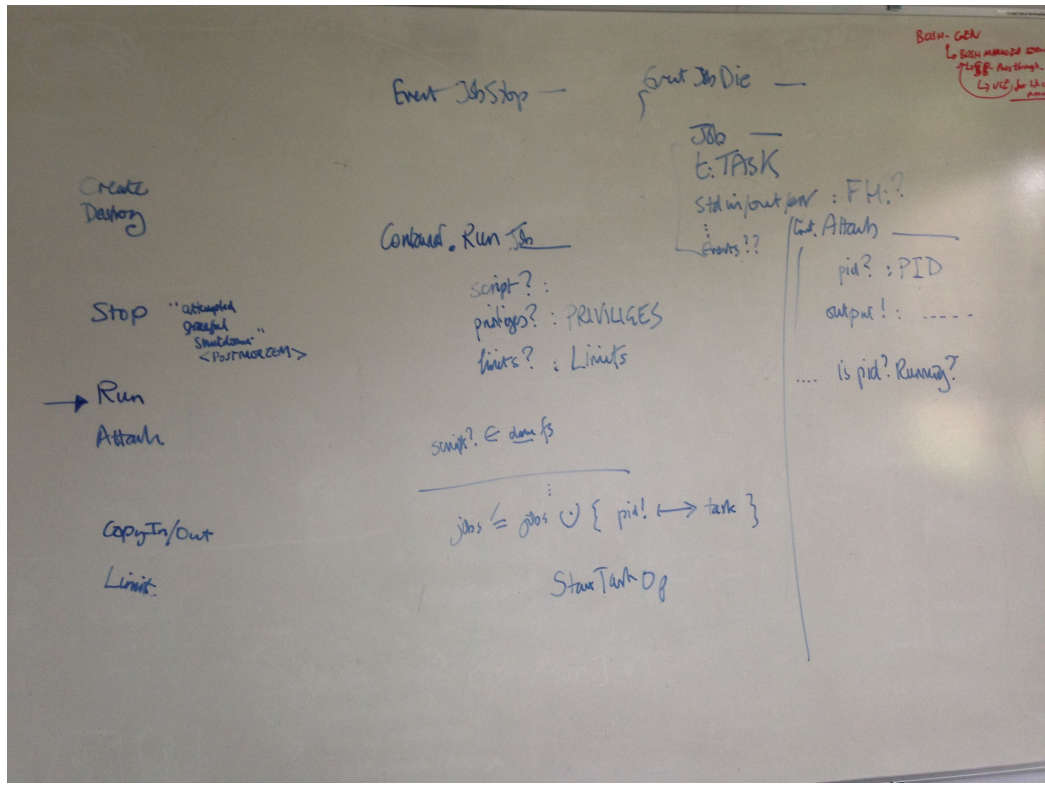 BOSH-GEN
Event JobStop —
Event Job Die —
Job —
t: TASK
stdin/out/err : FH:?
⋮
Events??
Create
Destroy
Stop "attempted
graceful
shutdown"
<POSTMORTEM>
→ Run
Attach
CopyIn/Out
Limit
Run Job
script? :
priviliges? : PRIVILIGES
limits? : Limits
script? ∈ dom fs
⋮
jobs' = jobs ∪ { pid! ↦ task }
Op
Cont. Attach
pid? : PID
output! : .....
.... is pid? Running?